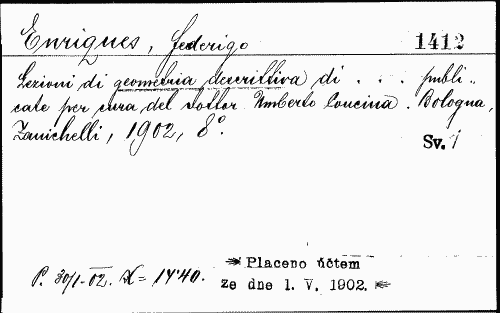 Enriques, Federigo
1412
Lezioni di geometria descrittiva di . . . publi-
cate per cura del dottor Umberto Concina. Bologna,
Zanichelli, 1902, 8°.
Sv. 1
P. 30/1.02. K = 17.40.
Placeno účtem
ze dne 1. V. 1902.